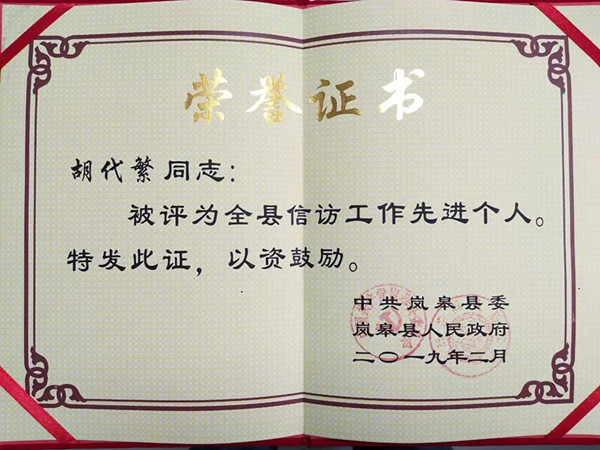 荣誉证书
胡代繁同志：
被评为全县信访工作先进个人。
特发此证，以资鼓励。
中共岚皋县委
岚皋县人民政府
二〇一九年二月